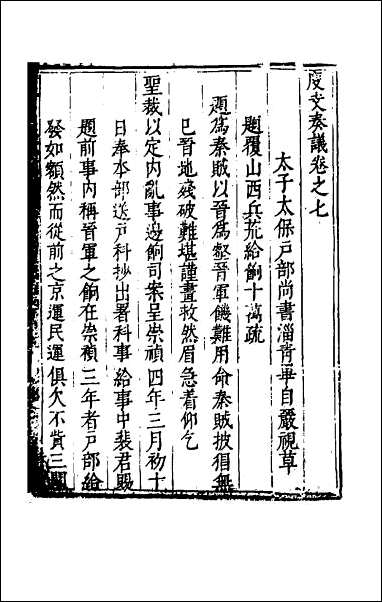 度支奏議卷之七
太子太保戶部尚書淄青畢自嚴視草
題覆山西兵荒給餉十萬疏
題為秦賊以晉為壑晉軍饑難用命秦賊披猖無
已晉地殘破難堪謹畫救然眉急着仰乞
聖裁以定內亂事邊餉司案呈崇禎四年三月初十
日奉本部送戶科抄出署科事給事中裴君賜
題前事內稱晉軍之餉在崇禎三年者戶部給
發如額然而從前之京運民運俱欠不貲三關